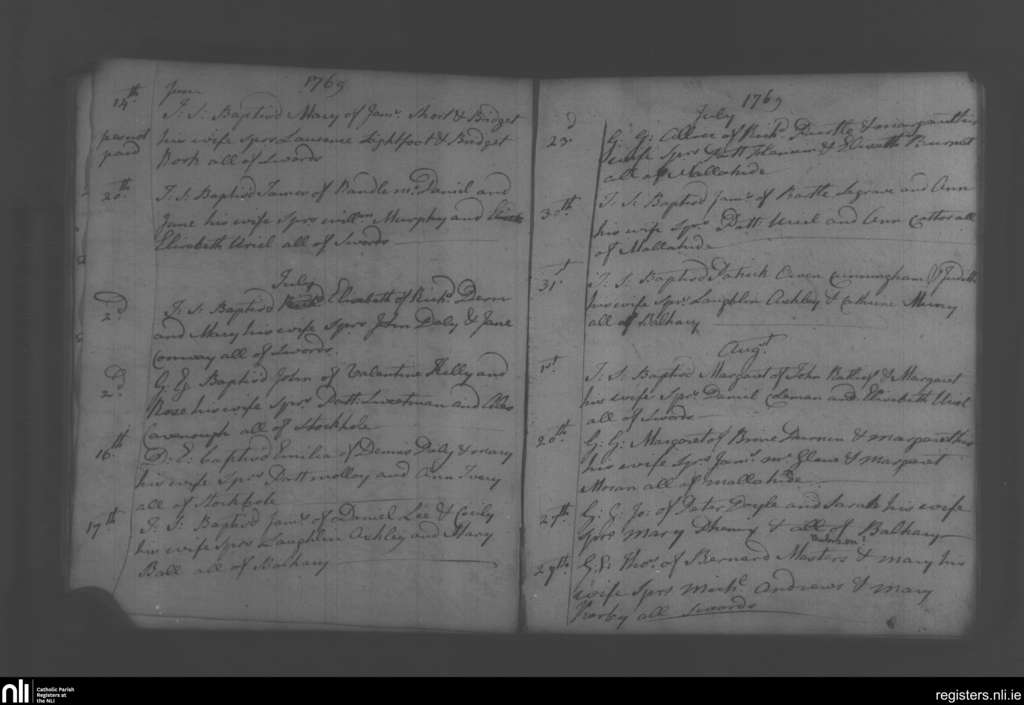 1769
June
14th T. S. Baptisd Mary of Jams. Short & Bridget
pas not his wife Sprs Laurence Lightfoot & Bridget
paid Rork all of Swords
20th T. S. Baptisd James of Randle Mc Daniel and
Jane his wife Sprs Willm Murphy and
Elisabeth Uriel all of Swords
July
2d T. S. Baptisd Elisabeth of Richd
and Mary his wife Sprs John Daly & Jane
Conway all of Swords
2d G. G. Baptisd John of Valentine Kelly and
Rose his wife Sprs Patt Sweetman and
Cavenough all of Stockhole
16th baptisd Emilia of Dennis Daly & Mary
his wife Sprs Patt molloy and Ann Ivery
all of Stockhole
17th T. S. Baptisd Jams of Daniel Lee & Cecily
his wife Sprs Laughlin Ashley and Mary
Ball all of Balhary
1769
July
23d G. G. of Richd & margaret his
wife Sprs Patt & Elisabeth
all of Mallahide
30th T. S. Baptisd Jams of Bartle Segrave and Ann
his wife Sprs Patt Uriel and Ann all
of Mallahide
31st T. S. Baptisd Patrick Owen Cunningham & Judith
his wife Sprs Laughlin Ashley & Catherine
all of Balhary
Augt
1st T. S. Baptisd Margaret of John & Margaret
his wife Sprs Daniel Coleman and Elisabeth Uriel
all of Swords
20th G. G. Margaret of Brine & margaret his
his wife Sprs Jams. & Margaret
Moran all of mallahide
27th G. G. Jo: of Peter Doyle and Sarah his wife
Sprs Mary & all of Balhary
29th G. G. Thos. of Bernard Masters & Mary his
wife Sprs Michl Andrews & Mary
Kerby all Swords
nli
Catholic Parish
Registers at
the NLI
registers.nli.ie